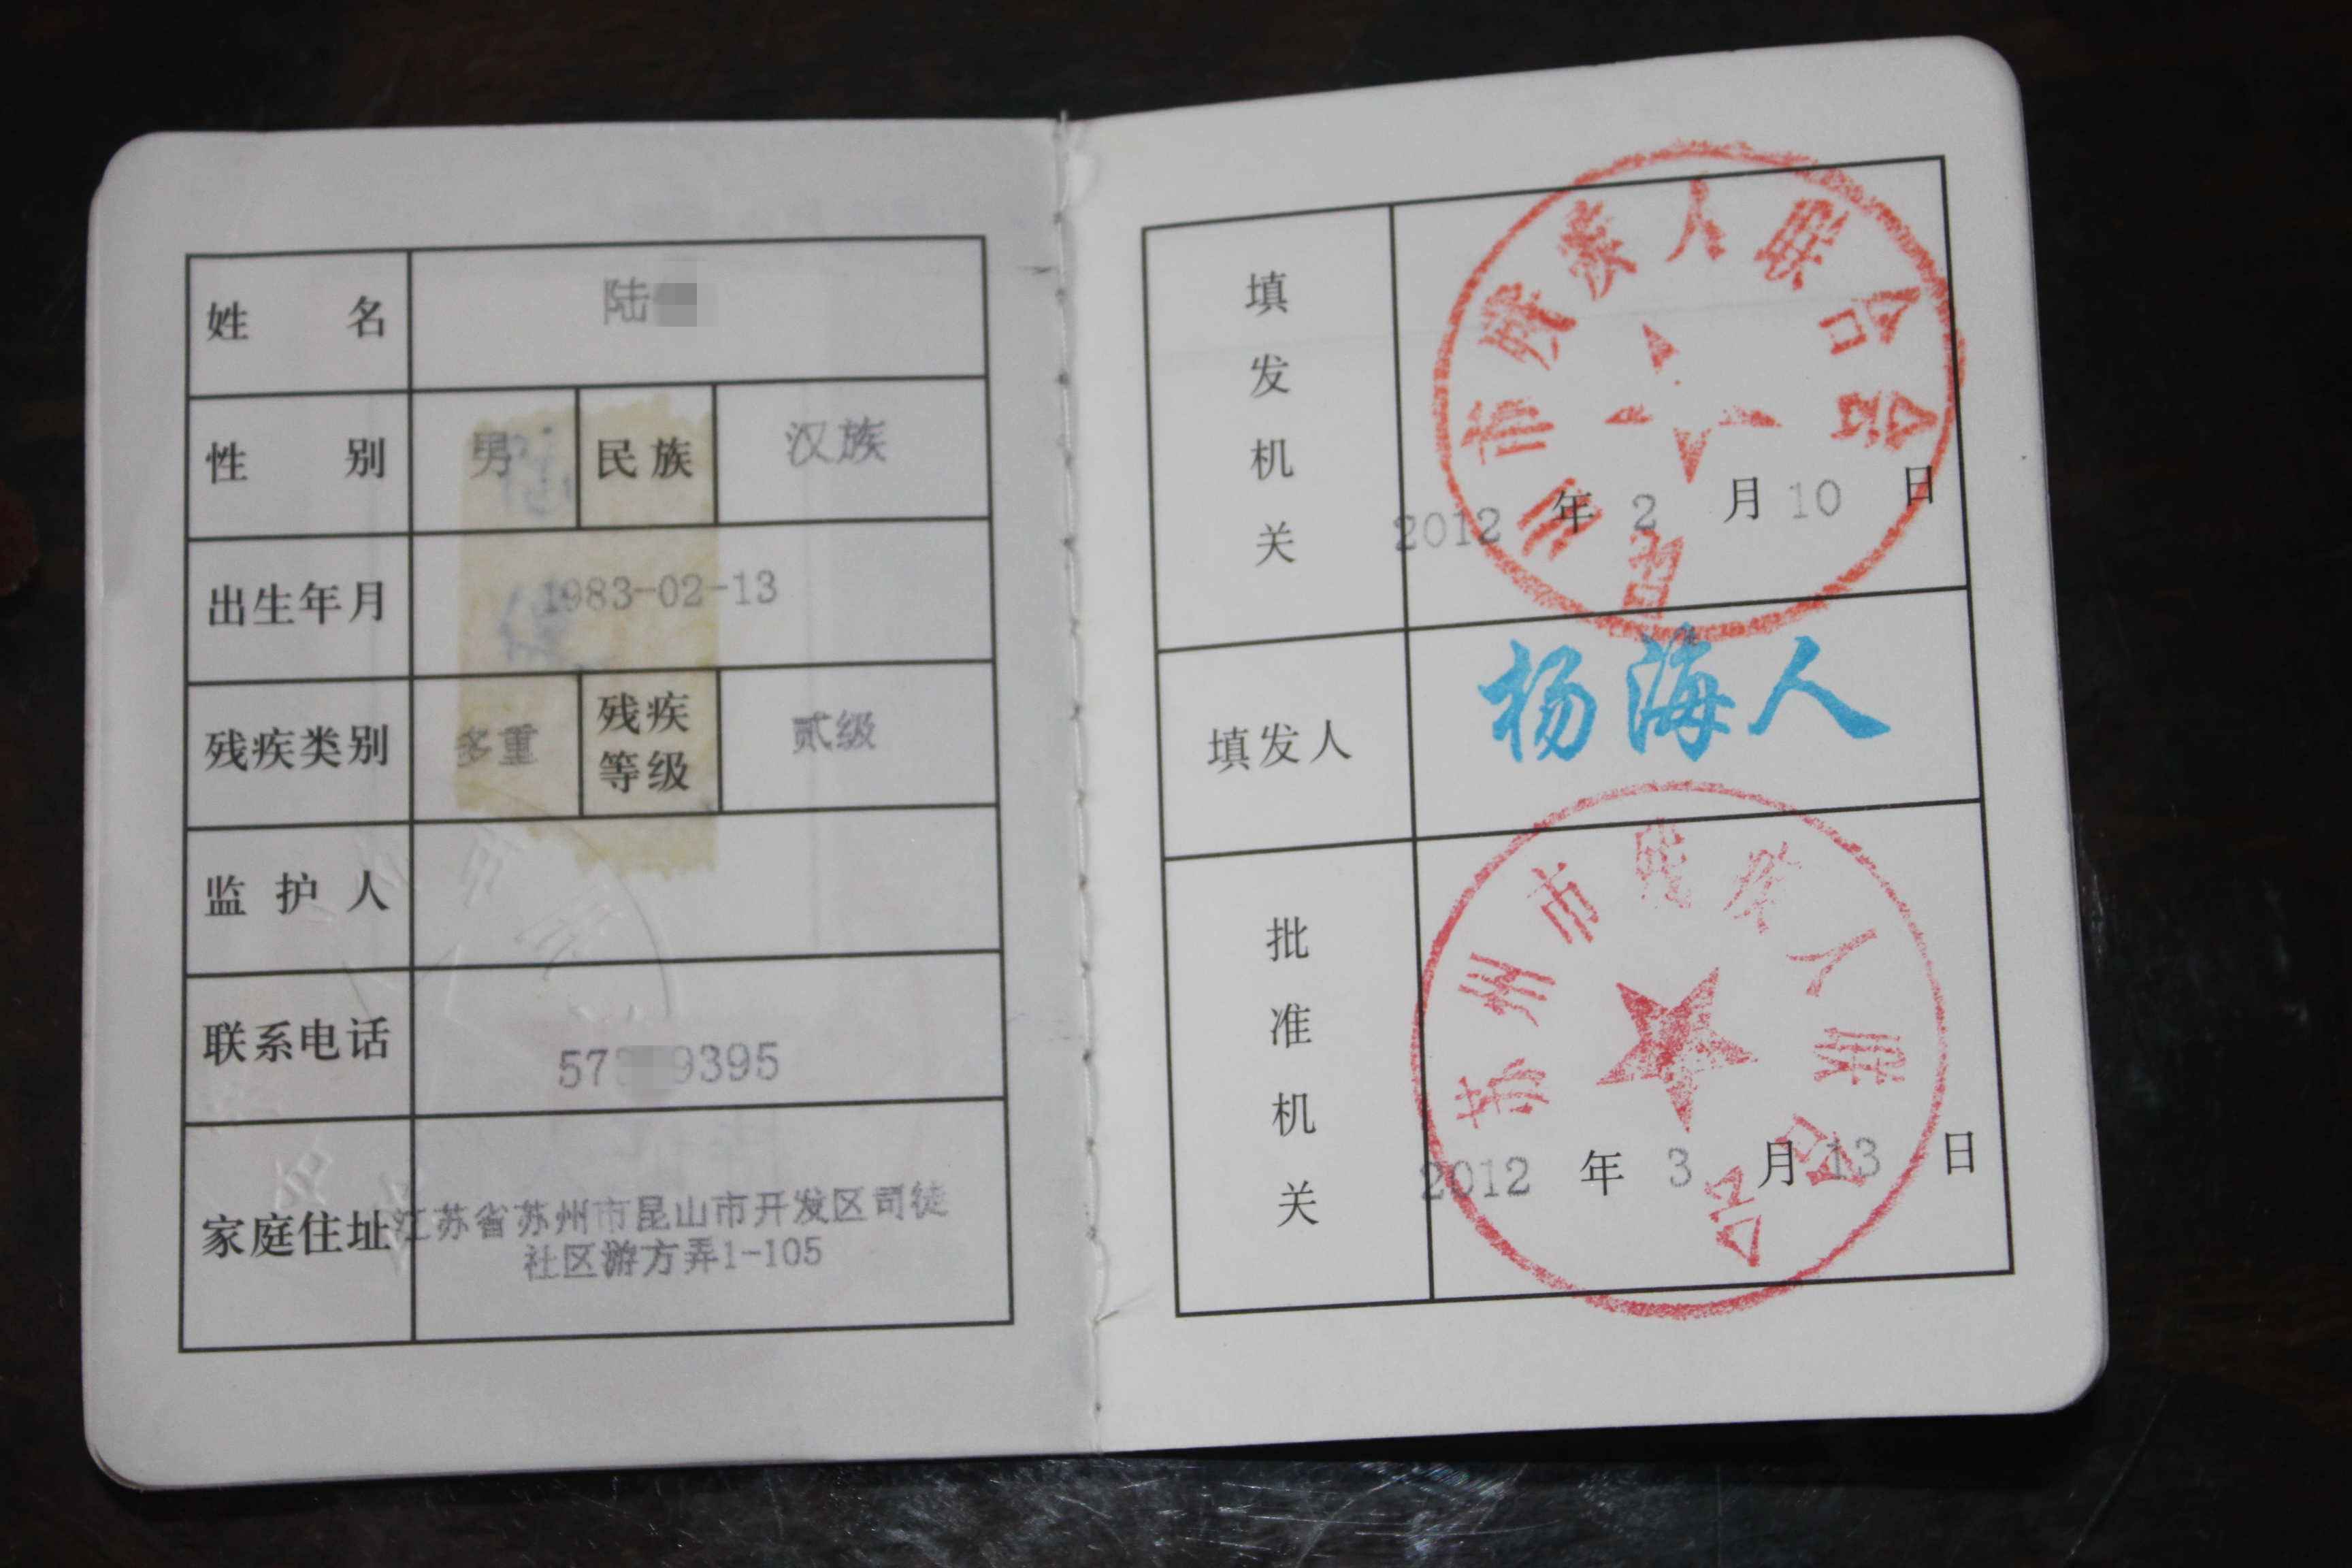 姓名 陆
性别 男 民族 汉族
出生年月 1983-02-13
残疾类别 多重 残疾等级 贰级
监护人
联系电话 57 9395
家庭住址 江苏省苏州市昆山市开发区司徒
社区游方弄1-105
填发机关
昆山市残疾人联合会
2012 年 2 月 10 日
填发人 杨海人
批准机关
苏州市残疾人联合会
2012 年 3 月 13 日